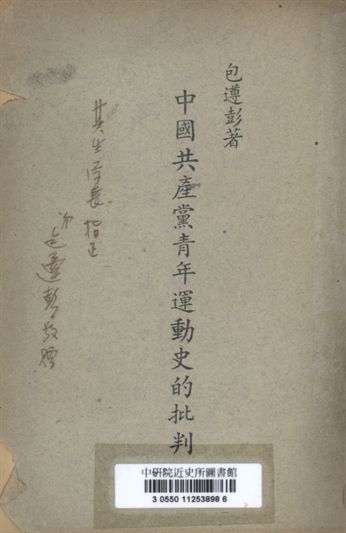 包遵彭著
中國共產黨青年運動史的批判
共生学長指正
弟包遵彭敬贈
中研院近史所圖書館
3 0550 11253898 6